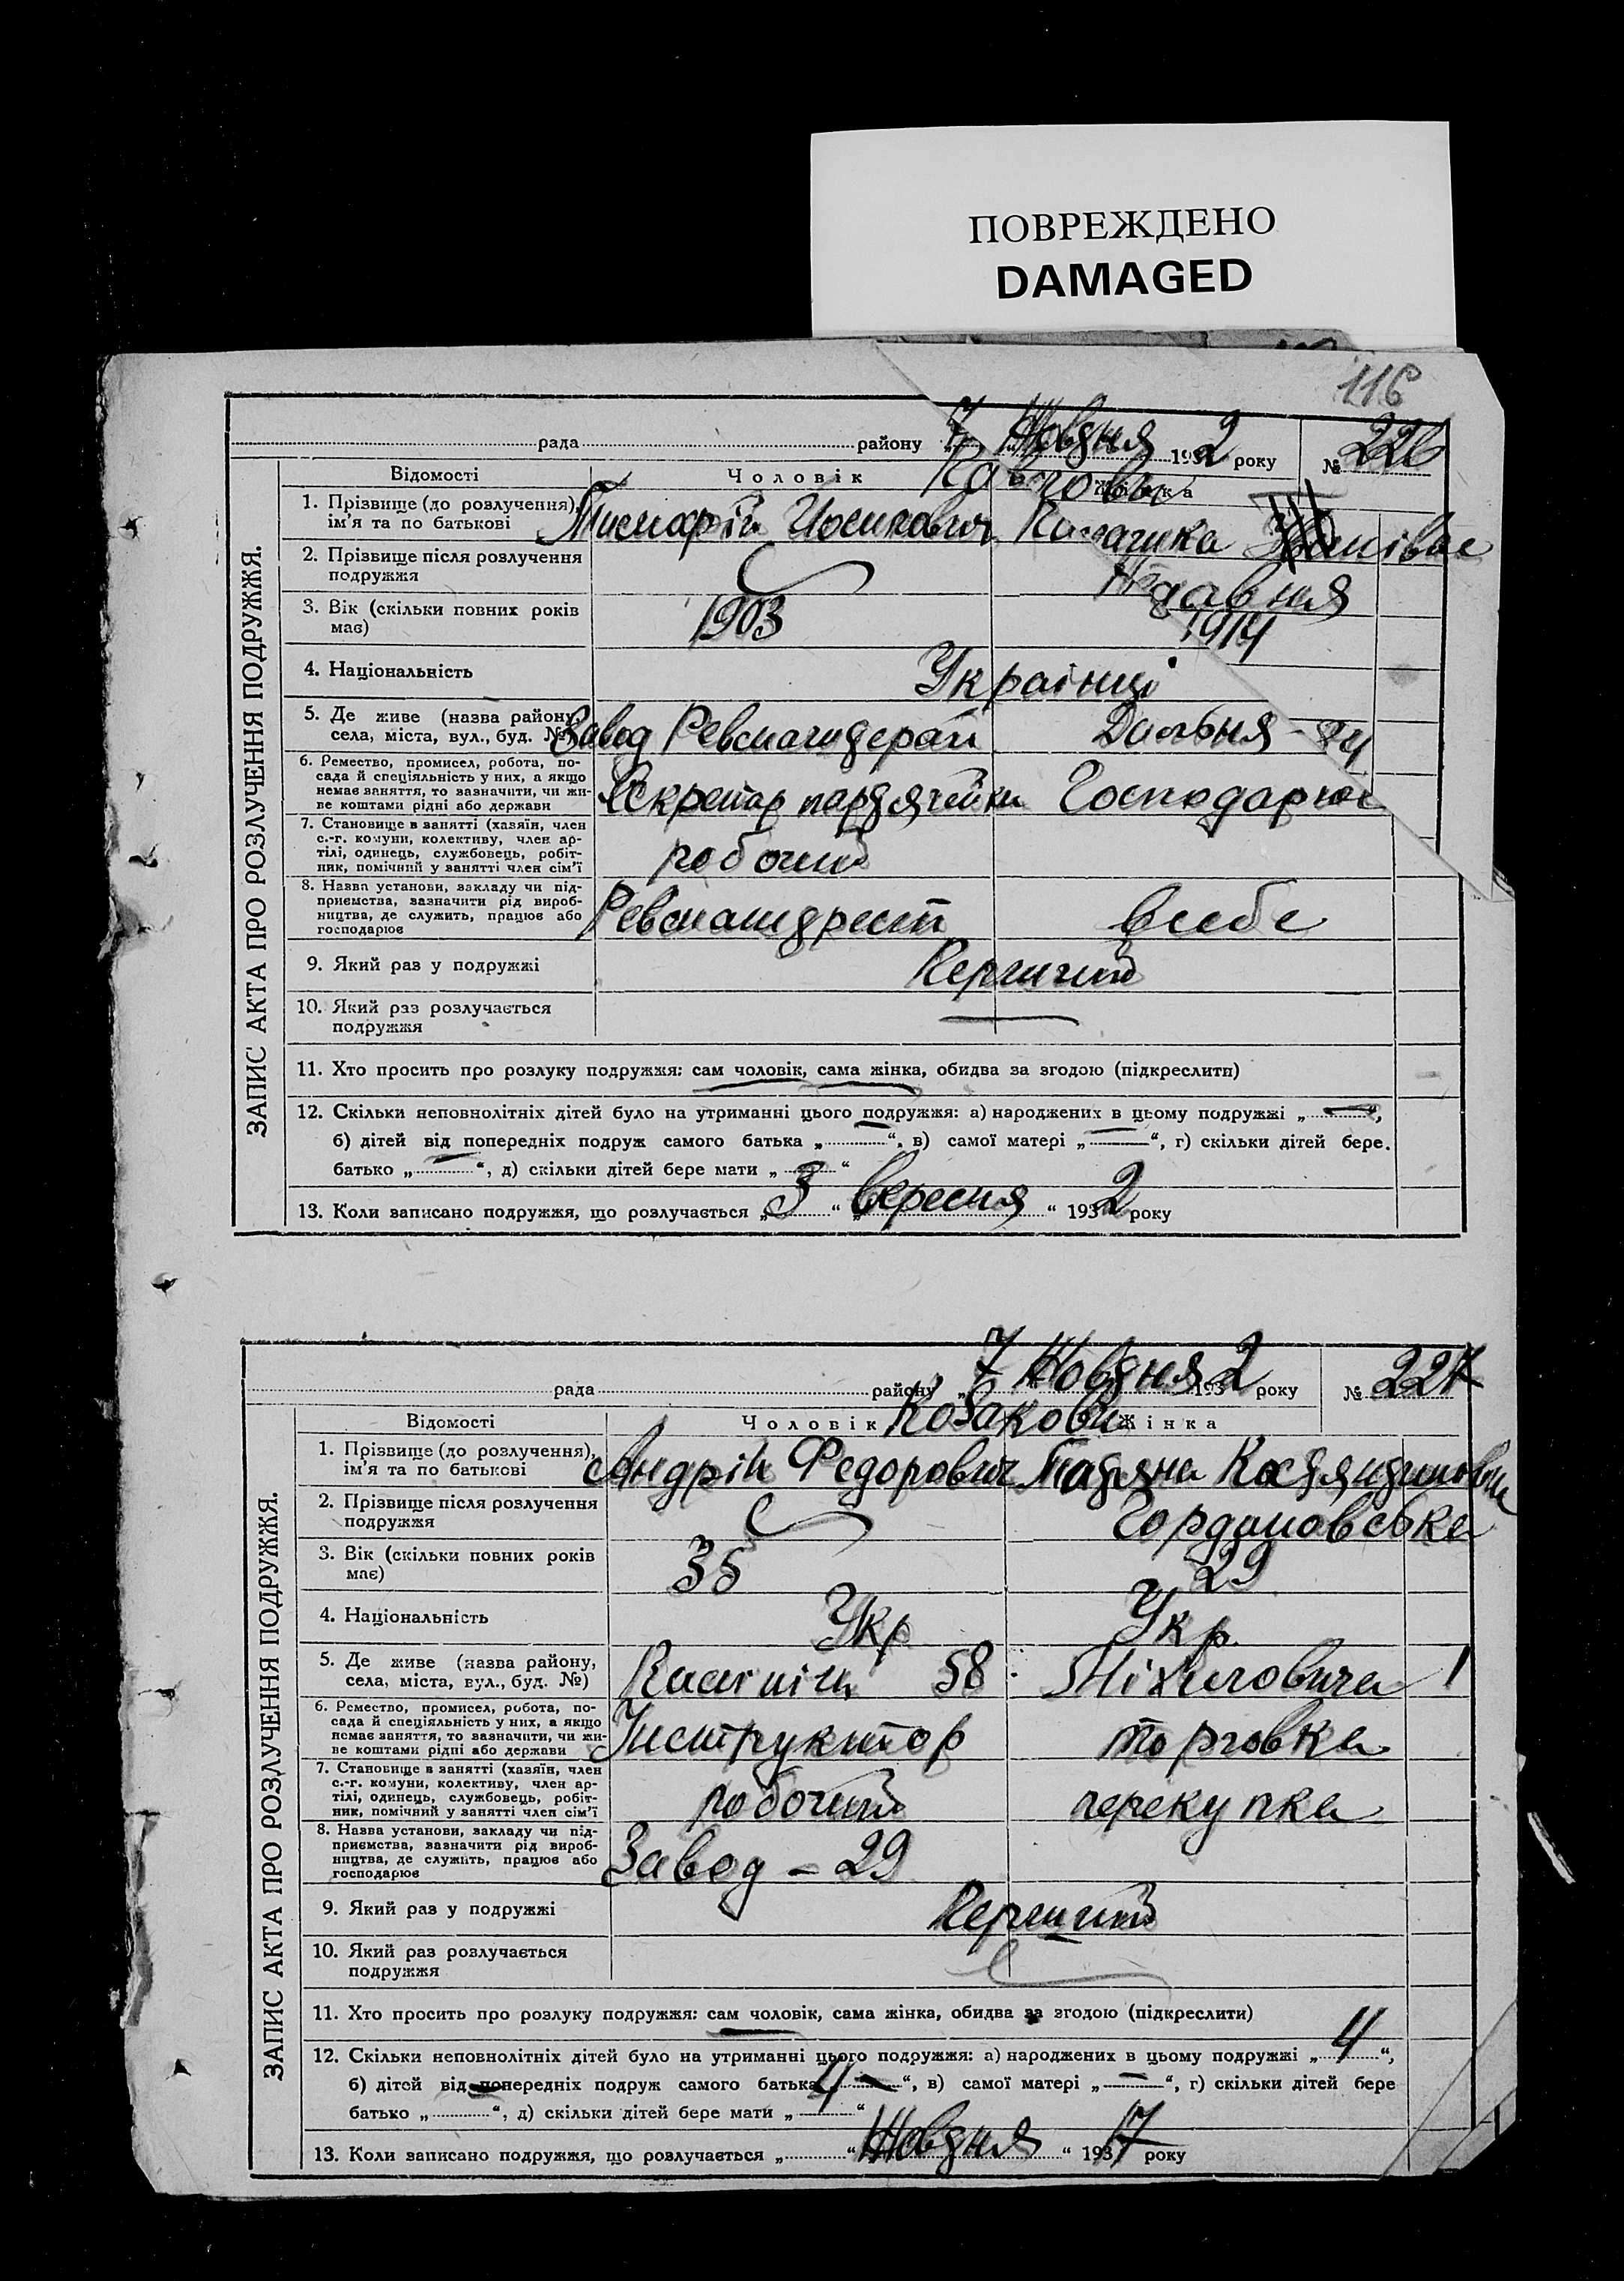 ПОВРЕЖДЕНО
DAMAGED
116
ЗАПИС АКТА ПРО РОЗЛУЧЕННЯ ПОДРУЖЖЯ.
рада району „7“ Жовтня 1932 року № 226
Відомості Чоловік Жінка
1. Прізвище (до розлучення), ім'я та по батькові Йосипович
2. Прізвище після розлучення подружжя
3. Вік (скільки повних років має) 1903 1914
4. Національність Українці
5. Де живе (назва району, села, міста, вул., буд. №) Завод Дальня
6. Ремество, промисел, робота, по-
сада й спеціяльність у них, а якщо
немає заняття, то зазначити, чи жи-
ве коштами рідні або держави Секретар партячейки Господарює
7. Становище в занятті (хазяїн, член
с.-г. комуни, колективу, член ар-
тілі, одинець, службовець, робіт-
ник, помічний у занятті член сім'ї робочий
8. Назва установи, закладу чи під-
приємства, зазначити рід вироб-
ництва, де служить, працює або
господарює всебе
9. Який раз у подружжі Перший
10. Який раз розлучається подружжя —
11. Хто просить про розлуку подружжя: сам чоловік, сама жінка, обидва за згодою (підкреслити)
12. Скільки неповнолітніх дітей було на утриманні цього подружжя: а) народжених в цьому подружжі „—“,
б) дітей від попередніх подруж самого батька „ “, в) самої матері „—“, г) скільки дітей бере
батько „—“, д) скільки дітей бере мати „ “
13. Коли записано подружжя, що розлучається „3“ „Вересня“ 1932 року
ЗАПИС АКТА ПРО РОЗЛУЧЕННЯ ПОДРУЖЖЯ.
рада району „7 Жовтня 1932 року № 227
Відомості Чоловік Козакови Жінка
1. Прізвище (до розлучення), ім'я та по батькові Андрій Федорович Татяна
2. Прізвище після розлучення подружжя
3. Вік (скільки повних років має) 35 29
4. Національність Укр Укр.
5. Де живе (назва району, села, міста, вул., буд. №) 58 1
6. Ремество, промисел, робота, по-
сада й спеціяльність у них, а якщо
немає заняття, то зазначити, чи жи-
ве коштами рідні або держави Інструктор торговка
7. Становище в занятті (хазяїн, член
с.-г. комуни, колективу, член ар-
тілі, одинець, службовець, робіт-
ник, помічний у занятті член сім'ї робочий перекупка
8. Назва установи, закладу чи під-
приємства, зазначити рід вироб-
ництва, де служить, працює або
господарює Завод – 29
9. Який раз у подружжі Перший
10. Який раз розлучається подружжя
11. Хто просить про розлуку подружжя: сам чоловік, сама жінка, обидва за згодою (підкреслити)
12. Скільки неповнолітніх дітей було на утриманні цього подружжя: а) народжених в цьому подружжі „4“,
б) дітей від попередніх подруж самого батька 4 — “, в) самої матері „—“, г) скільки дітей бере
батько „ “, д) скільки дітей бере мати „ “
13. Коли записано подружжя, що розлучається „ “ Жовтня “ 19317 року